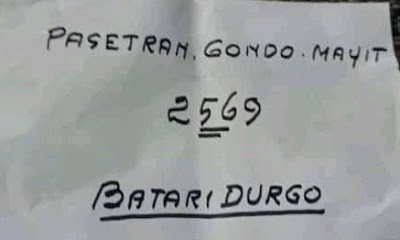 PASETRAN. GONDO. MAYIT
2569
BATARI DURGO